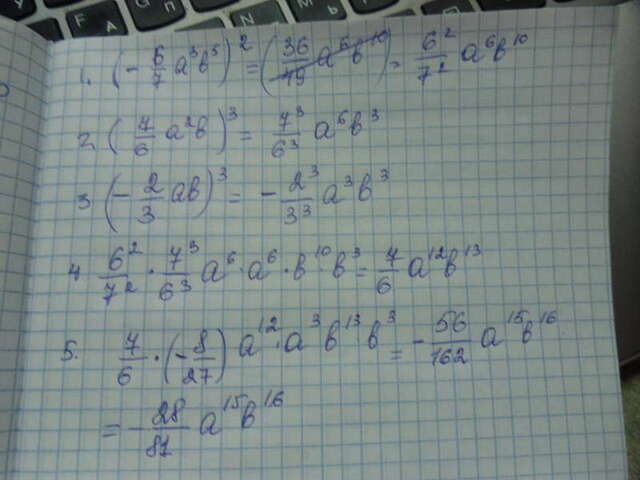 1. (- 6/7 a³b⁵)² = (36/49 a⁶b¹⁰) = 6²/7² a⁶b¹⁰
2. (7/6 a²b)³ = 7³/6³ a⁶b³
3 (- 2/3 ab)³ = - 2³/3³ a³b³
4 6²/7² · 7³/6³ a⁶ · a⁶ · b¹⁰ · b³ = 7/6 a¹²b¹³
5. 7/6 · (- 8/27) a¹² · a³ b¹³ · b³ = - 56/162 a¹⁵b¹⁶
= - 28/81 a¹⁵b¹⁶